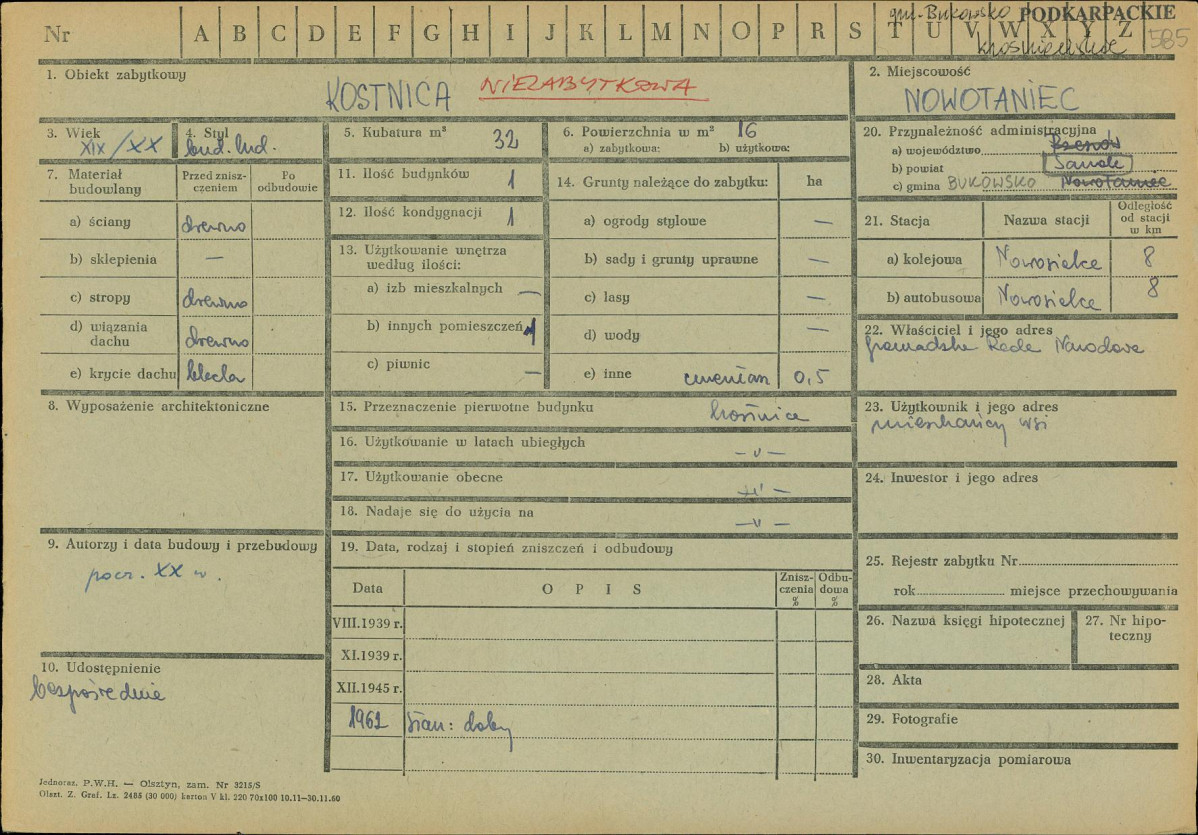 Nr A B C D E F G H I J K L M N O P R S T U V W X Y Z
gm. Bukowsko PODKARPACKIE
krośnieńskie 585
1. Obiekt zabytkowy
KOSTNICA NIEZABYTKOWA
2. Miejscowość
NOWOTANIEC
3. Wiek
XIX/XX
4. Styl
bud. lud.
5. Kubatura m³ 32
6. Powierzchnia w m² 16
a) zabytkowa: b) użytkowa:
7. Materiał budowlany
Przed zniszczeniem
Po odbudowie
a) ściany drewno
b) sklepienia —
c) stropy drewno
d) wiązania dachu drewno
e) krycie dachu blacha
8. Wyposażenie architektoniczne
9. Autorzy i data budowy i przebudowy
pocz. XX w.
10. Udostępnienie
bezpośrednie
11. Ilość budynków 1
12. Ilość kondygnacji 1
13. Użytkowanie wnętrza według ilości:
a) izb mieszkalnych —
b) innych pomieszczeń 1
c) piwnic —
14. Grunty należące do zabytku: ha
a) ogrody stylowe —
b) sady i grunty uprawne —
c) lasy —
d) wody —
e) inne cmentarz 0,5
15. Przeznaczenie pierwotne budynku kostnica
16. Użytkowanie w latach ubiegłych — ν —
17. Użytkowanie obecne — ν —
18. Nadaje się do użycia na — ν —
19. Data, rodzaj i stopień zniszczeń i odbudowy
Data OPIS Zniszczenia % Odbudowa %
VIII.1939 r.
XI.1939 r.
XII.1945 r.
1962 stan: dobry
20. Przynależność administracyjna
a) województwo Rzeszów
b) powiat Sanok
c) gmina BUKOWSKO Nowotaniec
21. Stacja Nazwa stacji Odległość od stacji w km
a) kolejowa Nowosielce 8
b) autobusowa Nowosielce 8
22. Właściciel i jego adres
Gromadzka Rada Narodowa
23. Użytkownik i jego adres
mieszkańcy wsi
24. Inwestor i jego adres
25. Rejestr zabytku Nr
rok miejsce przechowywania
26. Nazwa księgi hipotecznej
27. Nr hipoteczny
28. Akta
29. Fotografie
30. Inwentaryzacja pomiarowa
Jednoraz. P.W.H. — Olsztyn, zam. Nr 3215/S
Olszt. Z. Graf. Lz. 2485 (30 000) karton V kl. 220 70x100 10.11—30.11.60